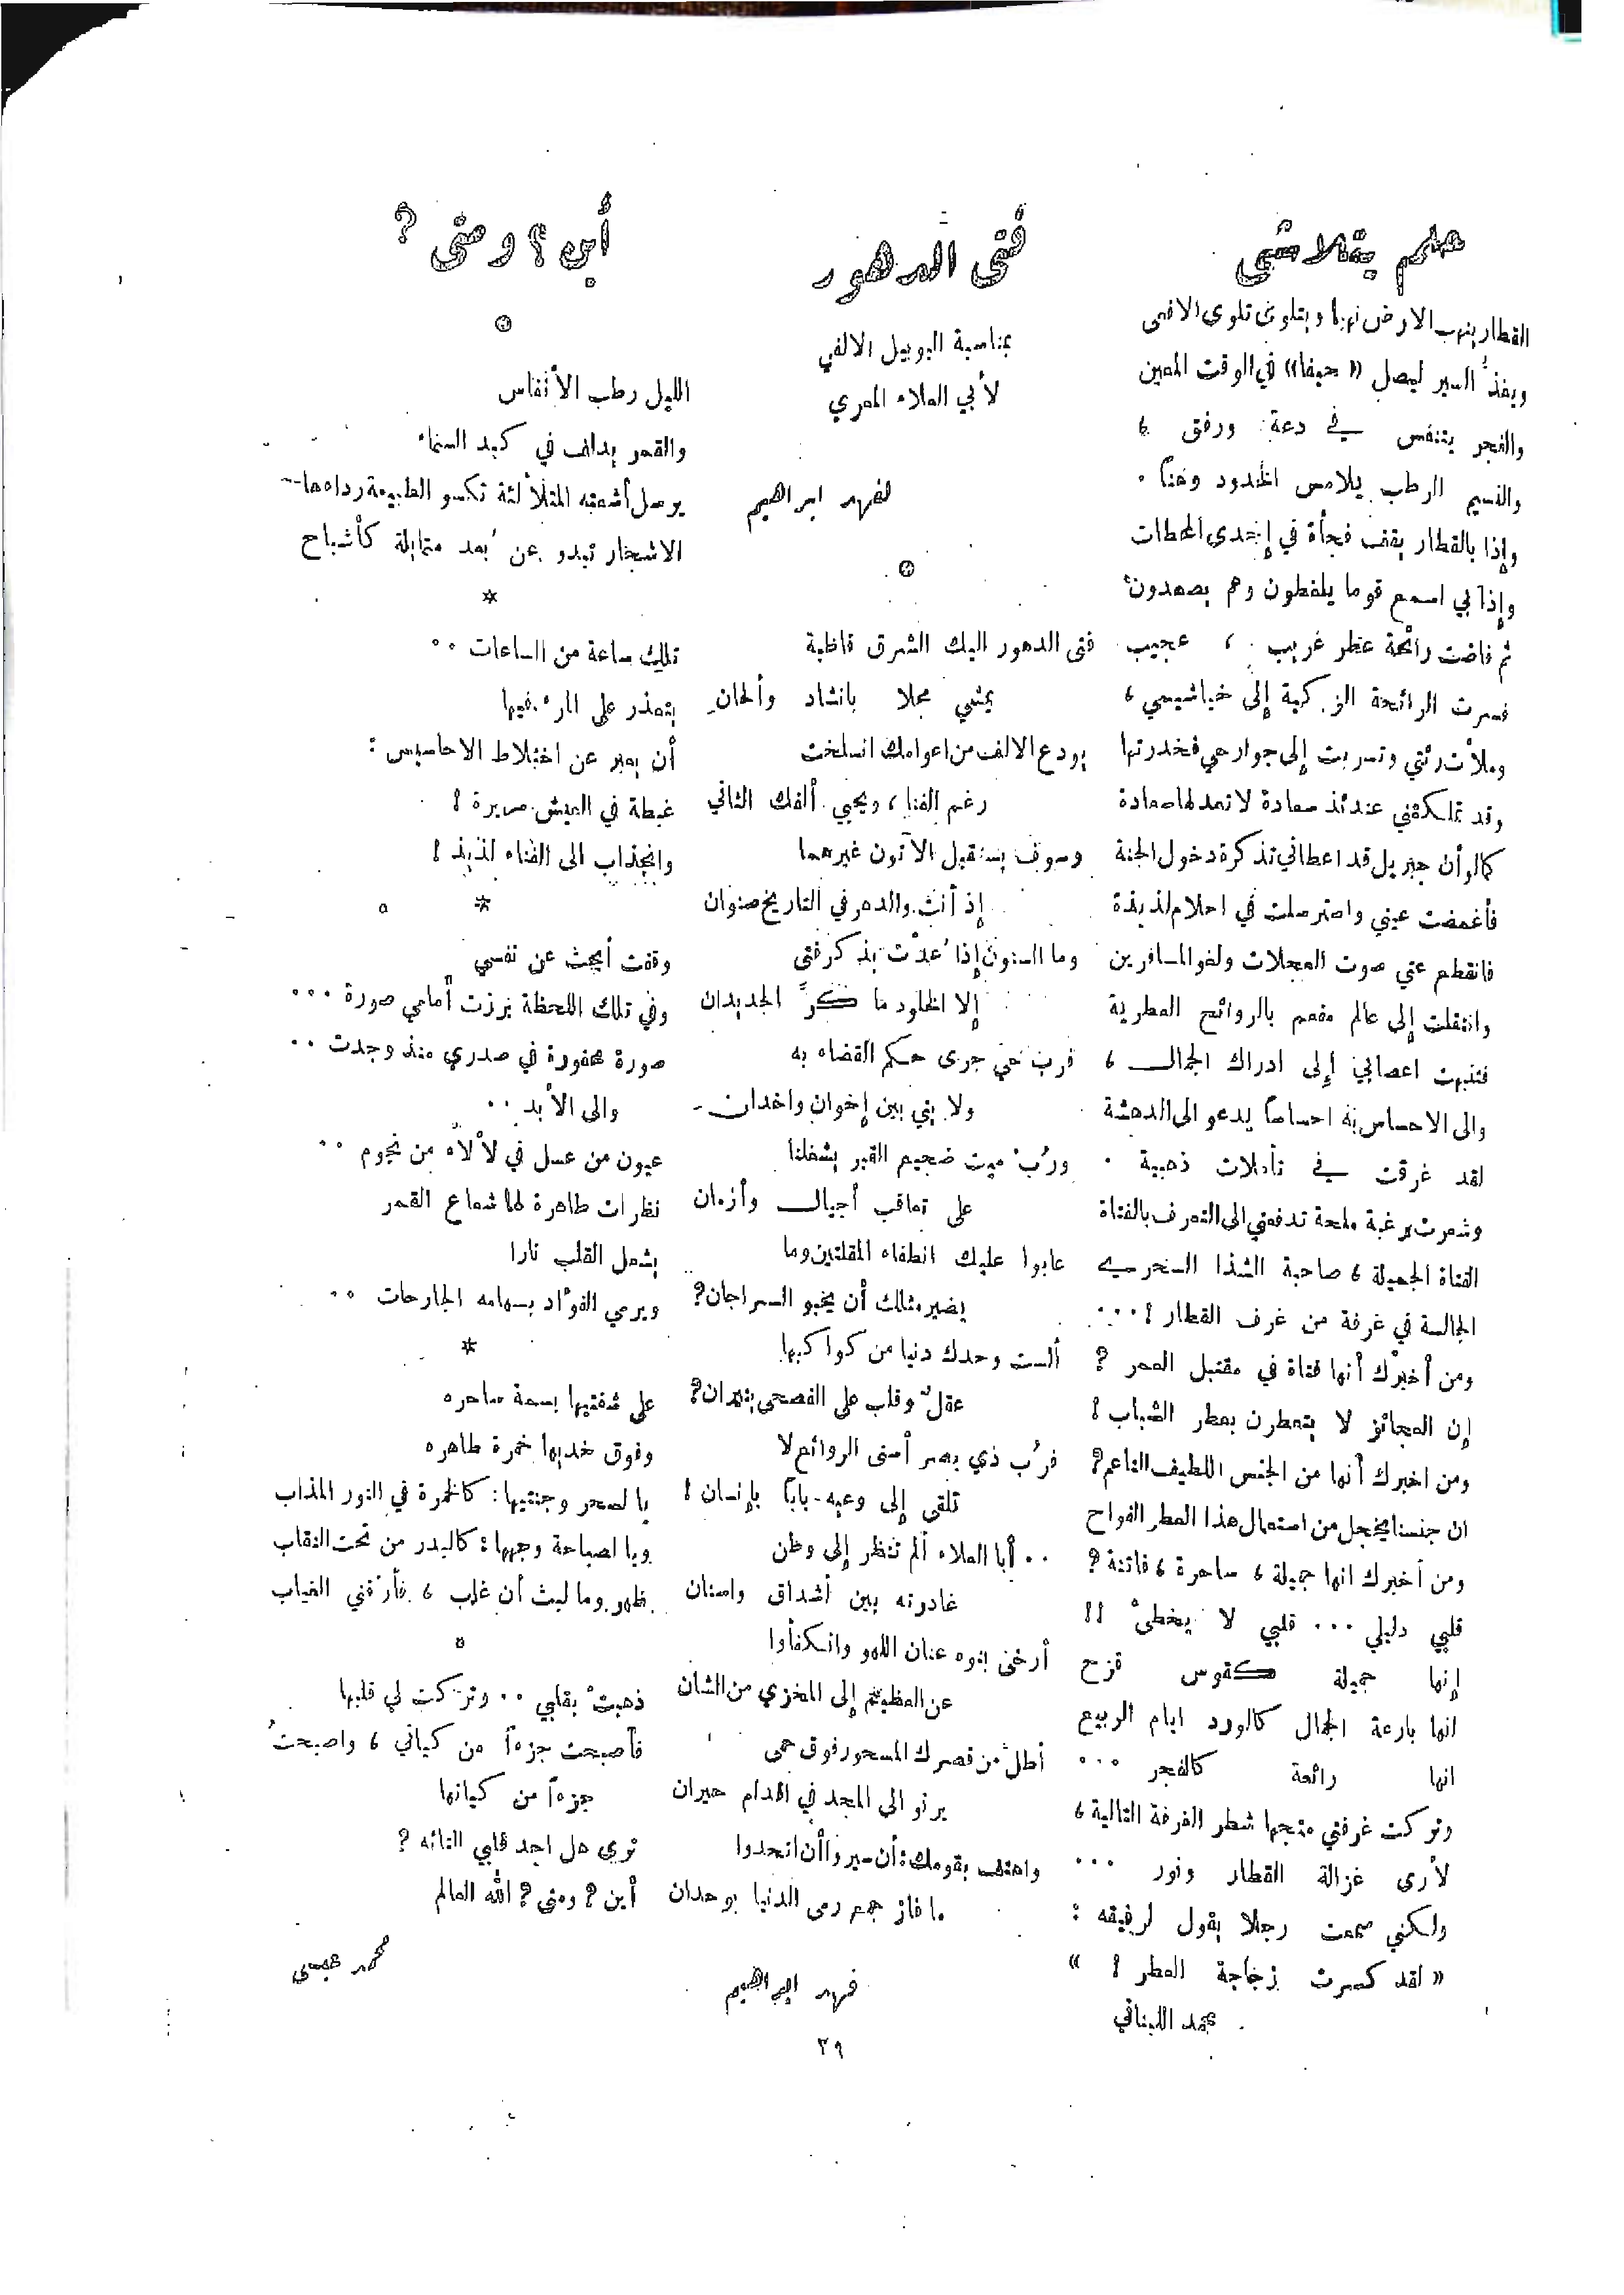 حلم يتلاشى
القطار ينهب الارض نهبا ويتلوى تلوي الافعى
ويغذُّ السير ليصل « حيفا » في الوقت المعين
والفجر يتنفس في دعة ورفق ،
والنسيم الرطب يلامس الخدود وهناً .
وإذا بالقطار يقف فجأة في إحدى المحطات
وإذا بي اسمع قوما يلغطون وهم يصعدون
ثم فاضت رائحة عطر غريب ، عجيب
فسرت الرائحة الزكية إلى خياشيمي ،
وملأت رئتي وتسربت إلى جوارحي فخدرتها
وقد تملكتني عندئذ سعادة لا تعدلها سعادة
كما لو أن جبريل قد اعطاني تذكرة دخول الجنة
فأغمضت عيني واسترسلت في احلام لذيذة
فانقطع عني صوت العجلات ولغو المسافرين
وانتقلت إلى عالم مفعم بالروائح العطرية
فتنبهت اعصابي إلى ادراك الجمال ،
والى الاحساس به احساساً يدعو الى الدهشة
لقد غرقت في تأملات ذهبية .
وشعرت برغبة ملحة تدفعني الى التعرف بالفتاة
الفتاة الجميلة ، صاحبة الشذا السحري
الجالسة في غرفة من غرف القطار ! ...
ومن أخبرك أنها فتاة في مقتبل العمر ؟
إن العجائز لا يتعطرن بعطر الشباب !
ومن اخبرك أنها من الجنس اللطيف الناعم ؟
ان جنسنا يخجل من استعمال هذا العطر الفواح
ومن أخبرك انها جميلة ، ساحرة ، فاتنة ؟
قلبي دليلي ... قلبي لا يخطئ !!
إنها جميلة كقوس قزح
انها بارعة الجمال كالورد ايام الربيع
انها رائعة كالفجر ...
وتركت غرفتي متجها شطر الغرفة التالية ،
لأرى غزالة القطار ونور ...
ولكني سمعت رجلا يقول لرفيقه :
« لقد كسرت زجاجة العطر ! »
محمد اللبناني
فتى الدهور
بمناسبة اليوبيل الالفي
لأبي العلاء المعري
لفهد ابراهيم
فتى الدهور اليك الشرق قاطبة
يمشي مجلا بانشاد وألحان
يودع الالف من اعوامك انسلخت
رغم الفنا ، ويحيي ألفك الثاني
وسوف يستقبل الآتون غيرهما
إذ أنت والدهر في التاريخ صنوان
وما السنون إذا عدت بذكر فتى
إلا الخلود ما كرَّ الجديدان
فرب حي جرى حكم القضاء به
ولا بني بين إخوان واخدان
وربُ ميت ضجيع القبر يشغلنا
على تعاقب أجيال وأزمان
عابوا عليك انطفاء المقلتين وما
يضير مثلك أن يخبو السراجان ؟
ألست وحدك دنيا من كواكبها
عقل وقلب على الفصحى ينيران ؟
فربُ ذي بصر أسنى الروائع لا
تلقى إلى وعيه باباً بإنسان !
.. أبا العلاء ألم تنظر إلى وطن
غادرته بين أشداق واسنان
أرخى بنوه عنان اللهو وانكفأوا
عن العظيم إلى المخزي من الشان
أطل من قصرك المسحور فوق حمى
يرنو الى المجد في اقدام حيران
واهتف بقومك : أن سيروا أن اتحدوا
ما فاز جمع رمى الدنيا بوحدان
فهد ابراهيم
أين ؟ ومتى ؟
الليل رطب الأنفاس
والقمر يدلف في كبد السماء
يرسل أشعته المتلألئة تكسو الطبيعة رداءها --
الاشجار تبدو عن بُعد متمايلة كأشباح
*
تلك ساعة من الساعات ..
يتعذر على المرء فيها
أن يعبر عن اختلاط الاحاسيس :
غبطة في العيش مريرة !
وانجذاب الى الفناء لذيذ !
*
وقفت أبحث عن نفسي
وفي تلك اللحظة برزت أمامي صورة ...
صورة محفورة في صدري منذ وجدت ..
والى الأبد ..
عيون من عسل في لألاء من نجوم ..
نظرات طاهرة لها شعاع القمر
يشعل القلب نارا
ويرمي الفؤاد بسهامه الجارحات ..
*
على شفتيها بسمة ساحره
وفوق خديها خمرة طاهره
يا لسحر وجنتيها : كالخمرة في النور المذاب
ويا لصباحة وجهها : كالبدر من تحت النقاب
ظهر وما لبث أن غاب ، فأرقني الغياب
ذهبتْ بقلبي .. وتركت لي قلبها
فأصبحت جزءاً من كياني ، واصبحتُ
جزءاً من كيانها
ترى هل اجد قلبي التائه ؟
أين ؟ ومتى ؟ الله العالم
محمد عيسى
٢٩